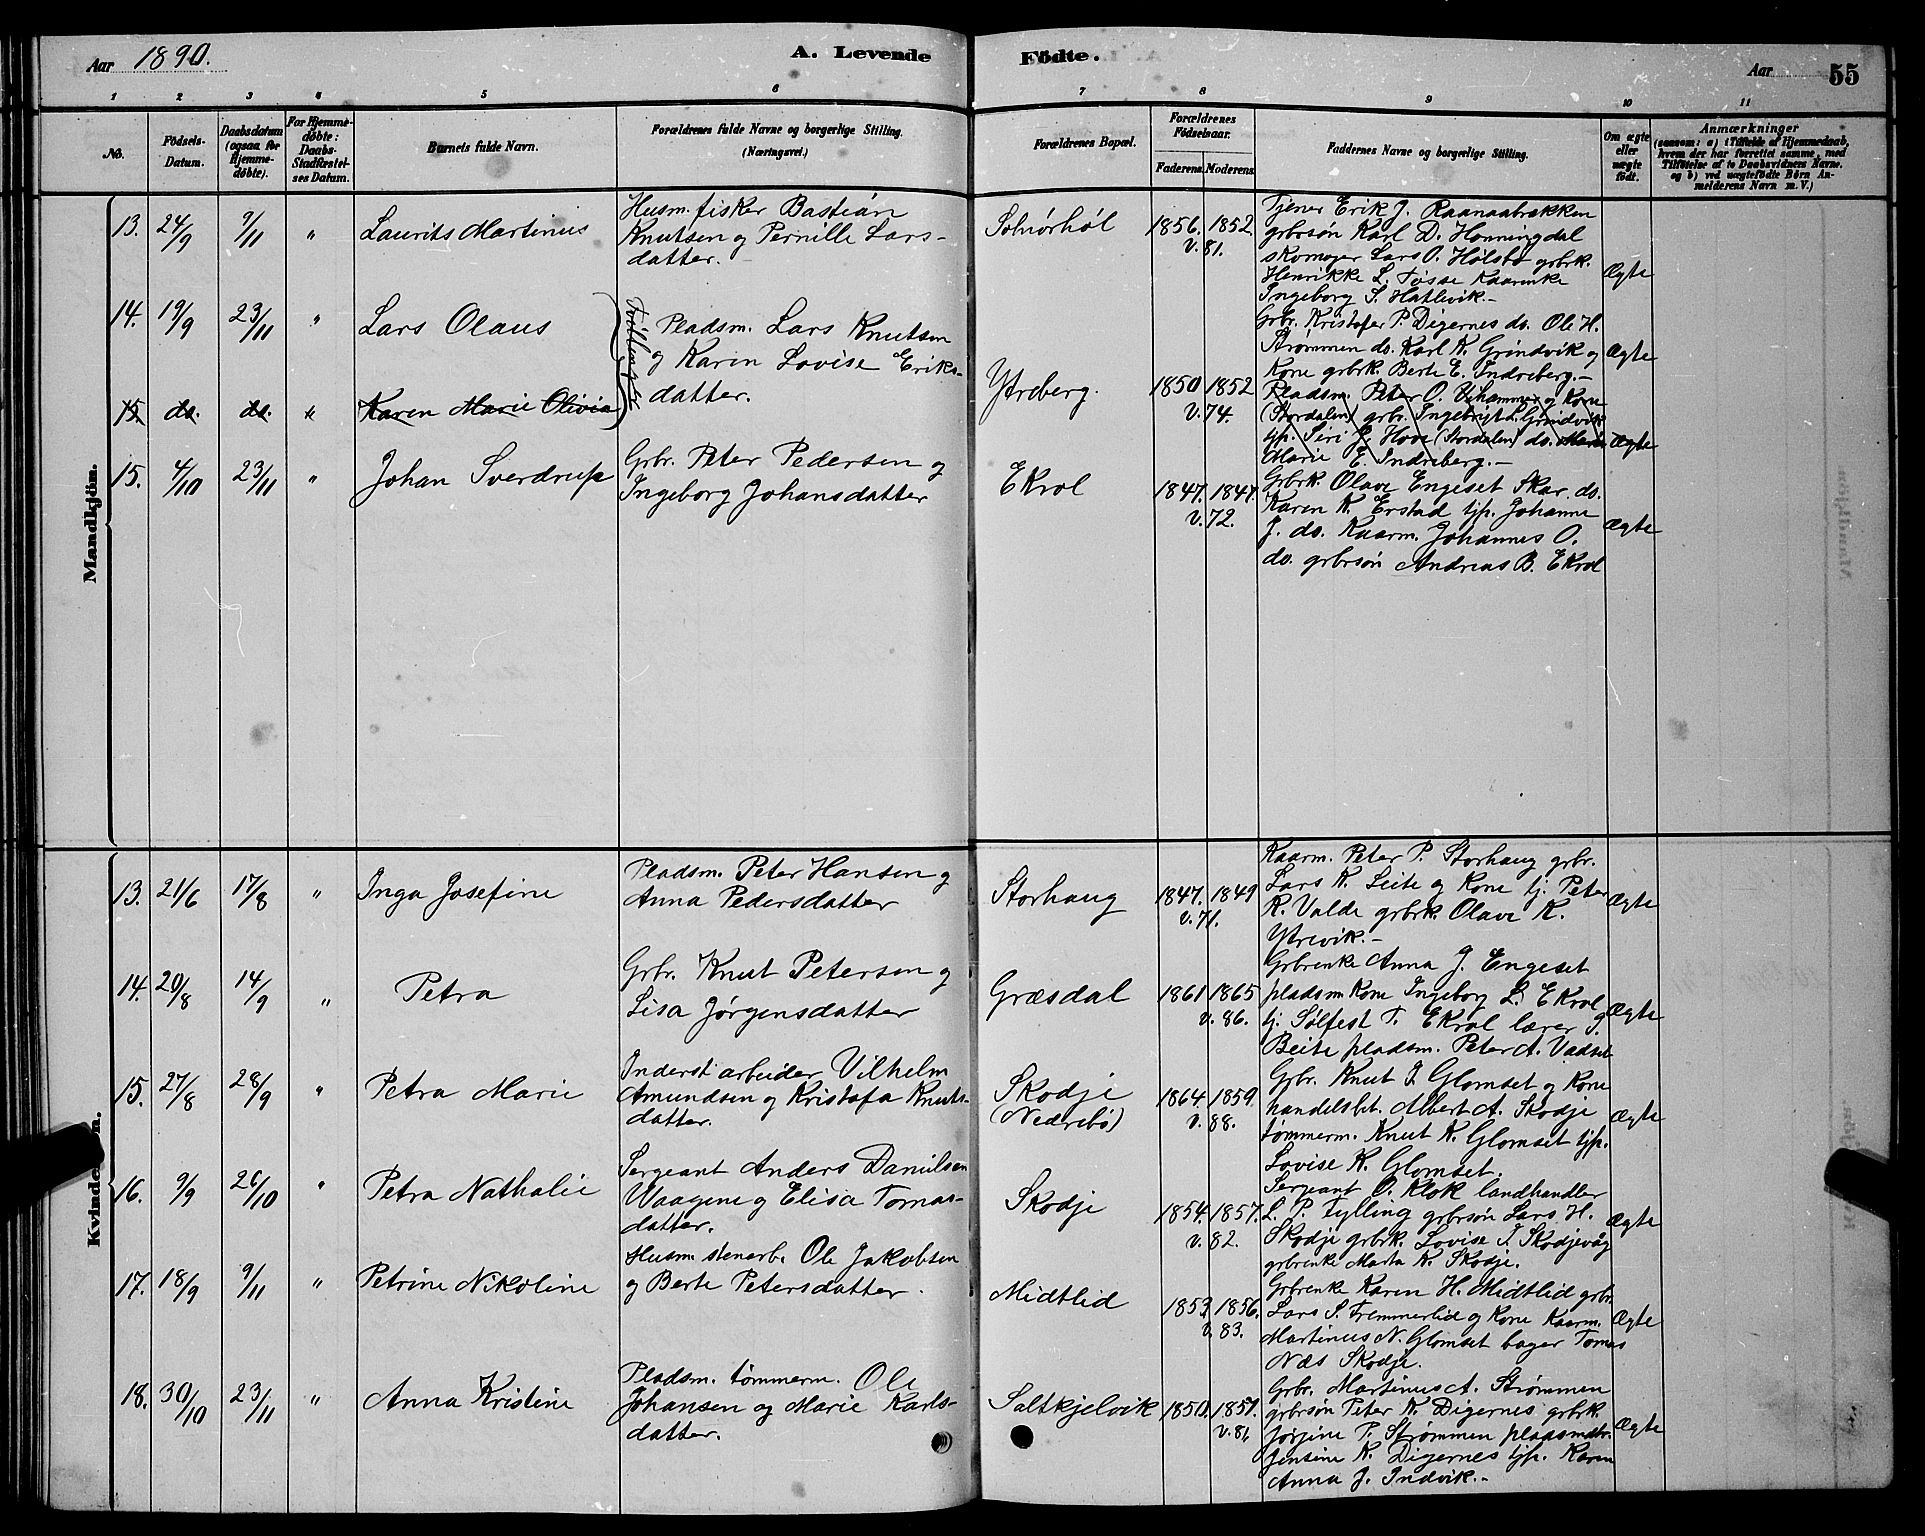 Aar 1890.
A. Levende
Födte.
Aar
55
1 2 3 4 5 6 7 8 9 10 11
No.
Födsels-
Datum.
Daabsdatum
(ogsaa for
Hjemme-
döbte).
For Hjemme-
döbte:
Daabs-
Stadfæstel-
ses Datum.
Barnets fulde Navn.
Forældrenes fulde Navne og borgerlige Stilling.
(Næringsvei.)
Forældrenes Bopæl.
Forældrenes
Födselsaar.
Faderens. Moderens.
Faddernes Navne og borgerlige Stilling.
Om ægte
eller
uægte
födt.
Anmærkninger
(saasom: a) i Tilfælde af Hjemmedaab,
hvem der har forrettet samme, med
Tilföielse af to Daabsvidners Navne.
og b) ved uægtefödte Börn An-
melderens Navn m. V.)
Mandkjön.
13. 24/9 9/11 " Laurits Martinus
Husm. fisker Bastian
Knutsen og Pernille Lars-
datter.
Solnørhøl
1856. 1852
v. 81.
Tjener Erik J. Raanaabrækken
grbrsøn Karl D. Honningdal
skomager Lars O. Hølsbø grbrk.
Henrikke L. Tøsse Kaarenke
Ingeborg S. Hatlevik.-
Ægte
14. 19/9 23/11 " Lars Olaus
Tvillinger
Pladsm. Lars Knutsen
og Karen Lovise Eriks-
datter.
Ytreberg.
1850 1852
v. 74.
Grbr. Kristofer P. Digernes do. Ole H.
Strømmen do. Karl K. Grindvik og
Kone grbrk. Berte E. Indreberg.-
Ægte
15. do. do. " Karen Marie Olivia
Pladsm. Peter O. Uhammer og Kone
(Stordalen) grbr. Ingebrigt L. Grindvik
tjp. Siri P. Hove (Stordalen) do. Maren
Marie E. Indreberg.-
Ægte
15. 4/10 23/11 " Johan Sverdrup
Grbr. Peter Pedersen og
Ingeborg Johansdatter
Ekrol
1847. 1847.
v. 72.
Grbrk Olave Engeset Skar. do.
Karen K. Erstad tjp. Johanne
J. do. Kaarm. Johannes O.
do. grbrsøn Andreas B. Ekrol
Ægte
Kvindekjön.
13. 21/6 17/8 " Inga Josefine
Pladsm. Peter Hansen og
Anna Pedersdatter
Storhaug
1847. 1849
v. 71.
Kaarm. Peter P. Storhaug grbr.
Lars K. Leite og Kone tj. Peter
R. Valde grbrk. Olave K.
Ytrevik.-
Ægte
14. 20/8 14/9 " Petra
Grbr. Knut Petersen og
Lisa Jørgensdatter
Græsdal
1861 1865
v. 86.
Grbrenke Anna J. Engeset
pladsmkone Ingeborg L. Ekrol
tj. Sølfest T. Ekrol lærer P.
Beite pladsm. Peter A. Vadset
Ægte
15. 27/8 28/9 " Petra Marie
Inderst arbeider Vilhelm
Amundsen og Kristofa Knuts-
datter.
Skodje
(Nedrebø)
1864. 1859.
v. 88.
Grbr. Knut J. Glomset og Kone
handelsbet. Albert A. Skodje
tømmerm. Knut K. Glomset tjp.
Lovise K. Glomset.
Ægte
16. 9/9 26/10 " Petra Nathalie
Sergeant Anders Danielsen
Waagene og Elisa Tomas-
datter.
Skodje
1854. 1857.
v. 82.
Sergeant O. Klok landhandler
L. P. Fylling grbrsøn Lars H.
Skodje grbrk. Lovise J. Skodjevåg
grbrenke Marta K. Skodje.
Ægte
17. 18/9 9/11 " Petrine Nikoline
Husm. stenarb. Ole Jakobsen
og Berte Petersdatter.
Midtlid
1853 1856.
v. 83.
Grbrenke Karen H. Midtlid grbr.
Lars S. Fremmerlid og Kone Kaarm.
Martinus N. Glomset bager Tomas
Næs Skodje.
Ægte
18. 30/10 23/11 " Anna Kristine
Pladsm. tømmerm. Ole
Johansen og Marie Karls-
datter.
Saltkjelvik
1850. 1851.
v. 81
Grbr. Martinus A. Strømmen
grbrsøn Peter K. Digernes grbrk.
Jørgine P. Strømmen pladsmdtr.
Jensine K. Digernes tjp. Karen
Anna J. Indvik.-
Ægte